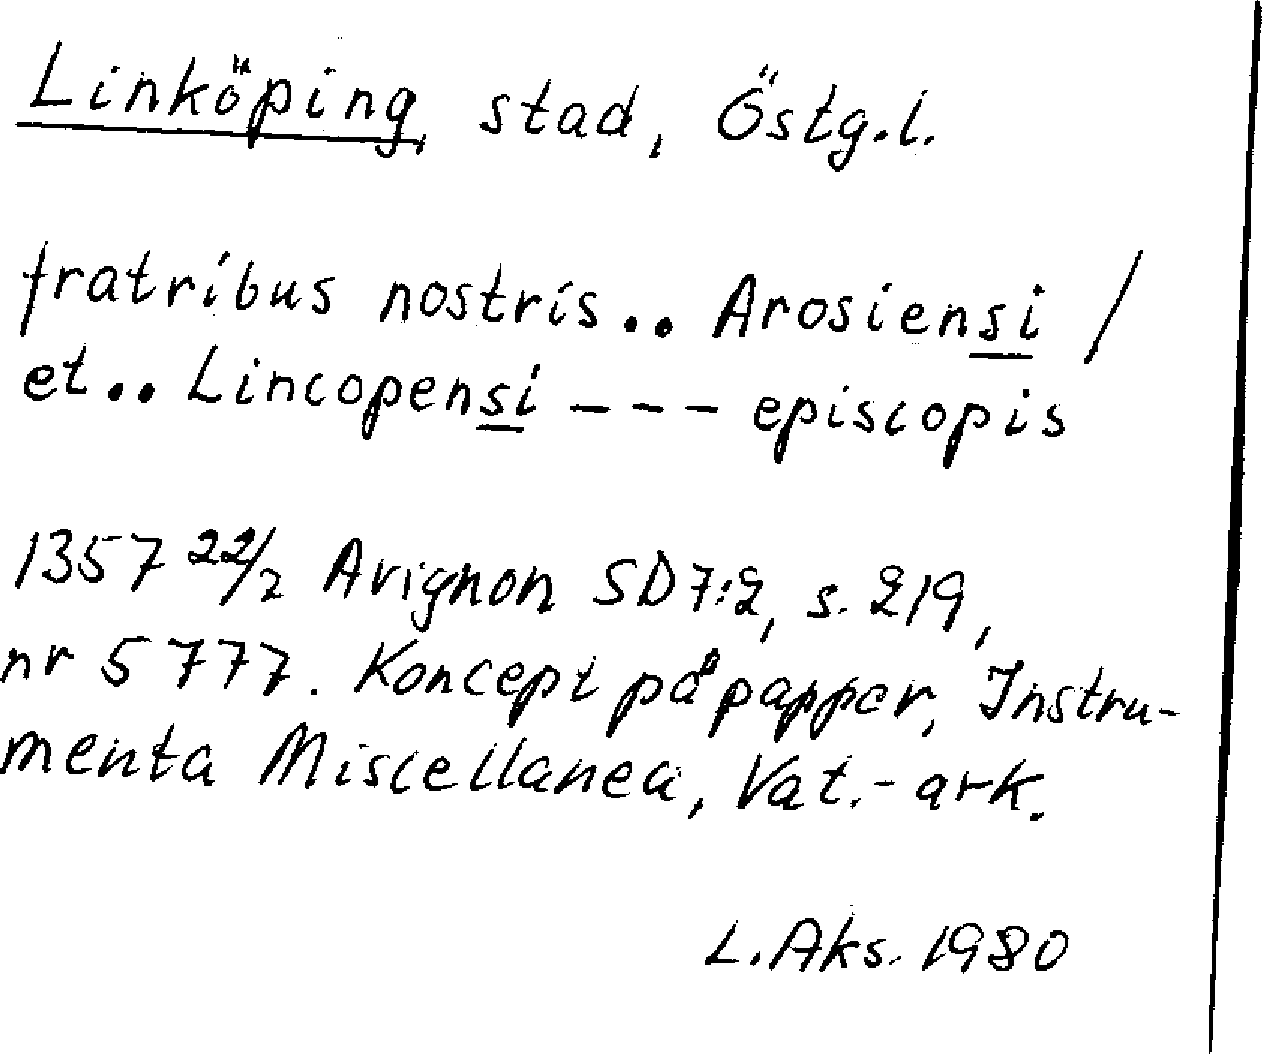 Linköping, stad, Östg.l.
fratribus nostris.. Arosiensi /
et.. Lincopensi --- episcopis
1357 22/2 Avignon SD 7:2, s. 219,
nr 5777. Koncept på papper, Instru-
menta Miscellanea, Vat.-ark.
L. Aks. 1980